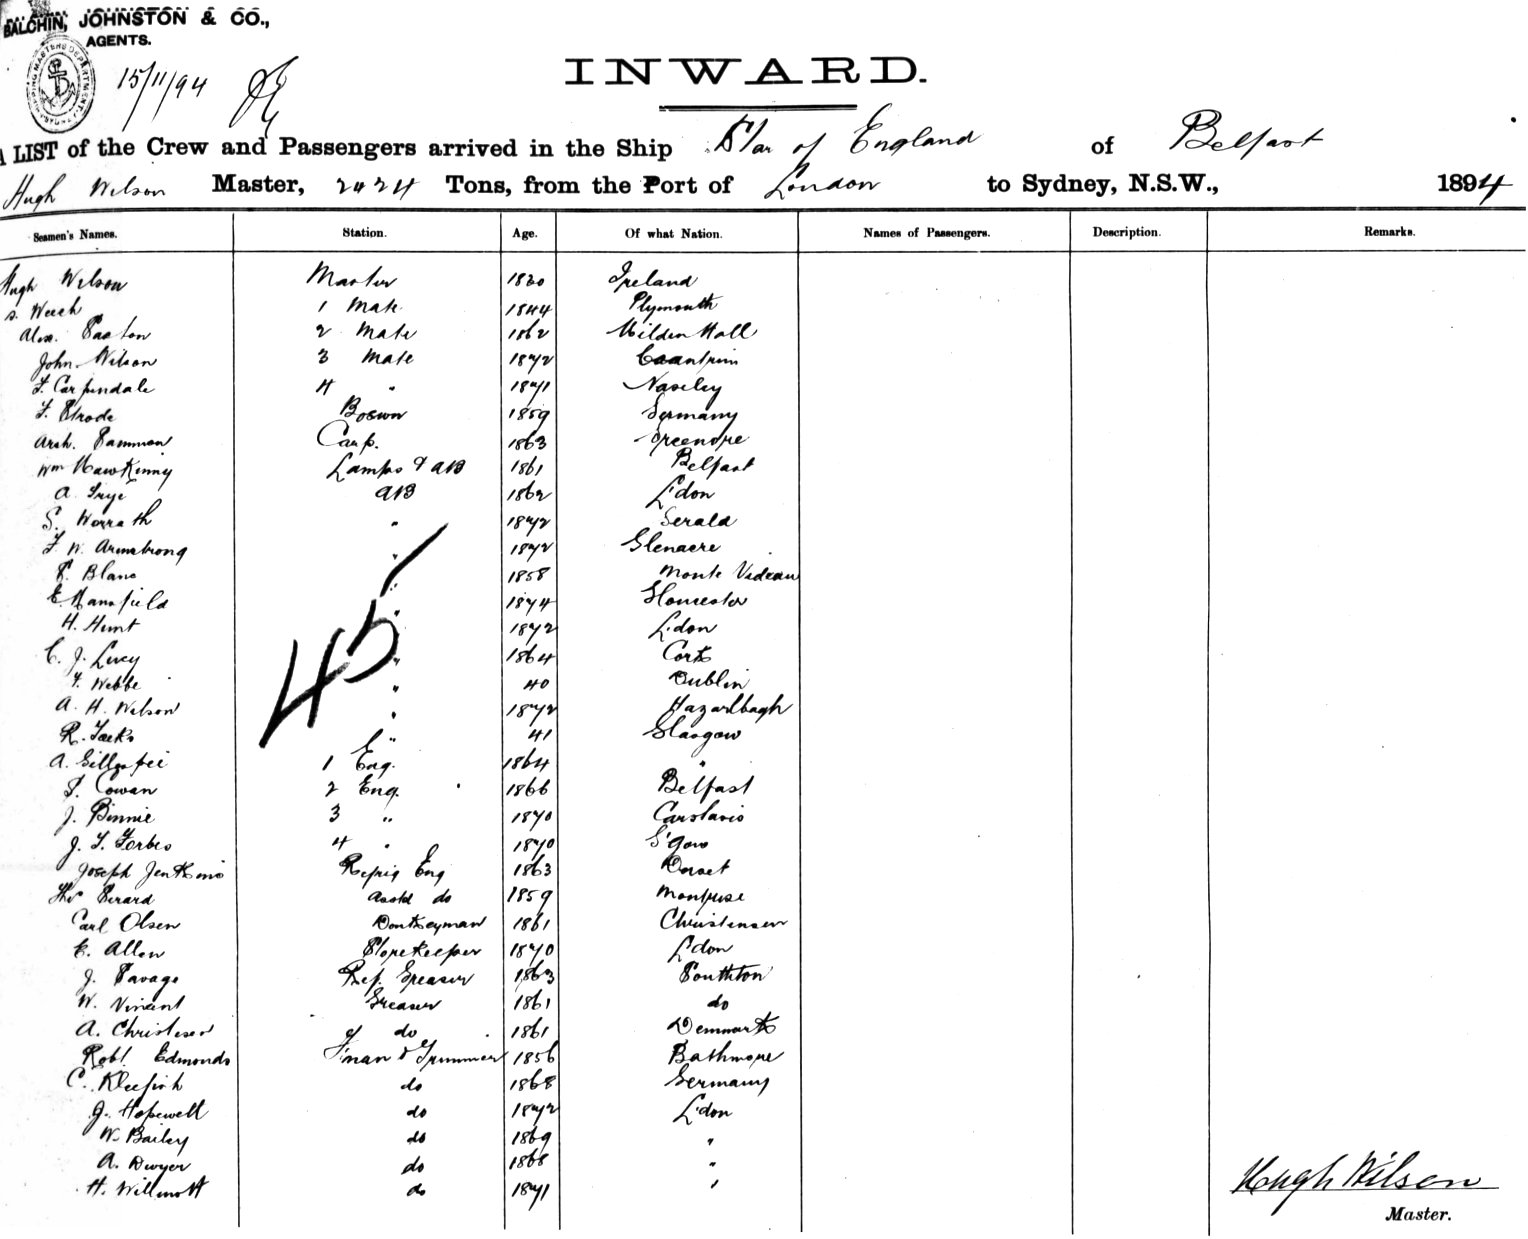 BALCHIN, JOHNSTON & CO.,
AGENTS.
15/11/94
INWARD.
A LIST of the Crew and Passengers arrived in the Ship Star of England of Belfast
Hugh Wilson Master, 2424 Tons, from the Port of London to Sydney, N.S.W., 1894
Seamen's Names. Station. Age. Of what Nation. Names of Passengers. Description. Remarks.
Hugh Wilson Master 1830 Ireland
S. Weech 1 Mate 1844 Plymouth
Alex. Paxton 2 Mate 1862 Mildenhall
John Wilson 3 Mate 1872 Coantrim
F. Carpendale 4 " 1871 Naseley
F. Strode Boswn 1859 Germany
Arch. Sammon Carp. 1863 Greenore
Wm Hawkinny Lamps & AB 1861 Belfast
A. Frye AB 1862 L'don
S. Worrath " 1872 Gerald
F. W. Armstrong " 1872 Glenacre
P. Blanc " 1858 Monte Videau
E. Mansfield " 1874 Gloucester
H. Hunt " 1872 L'don
C. J. Lucy " 1864 Cork
F. Webbe " 40 Dublin
A. H. Wilson " 1872 Hazarlbagh
R. Jacks " 41 Glasgow
45
A. Gillespie 1 Eng. 1864 "
S. Cowan 2 Eng. 1866 Belfast
J. Binnie 3 " 1870 Carstairs
J. T. Forbes 4 " 1870 G'gow
Joseph Jenkins Refrig Eng 1863 Dorset
Thos Gerard Assist do 1859 Montrose
Carl Olsen Donkeyman 1861 Christensen
E. Allen Storekeeper 1870 L'don
J. Savage Ref. Greaser 1863 Southton
W. Vincent Greaser 1861 do
A. Christesen do 1861 Denmark
Robt. Edmonds F'man & Trimmer 1856 Rathmore
C. Kleefish do 1868 Germany
J. Hopewell do 1872 L'don
W. Bailey do 1869 "
A. Dwyer do 1868 "
H. Willmott do 1871 "
Hugh Wilson
Master.